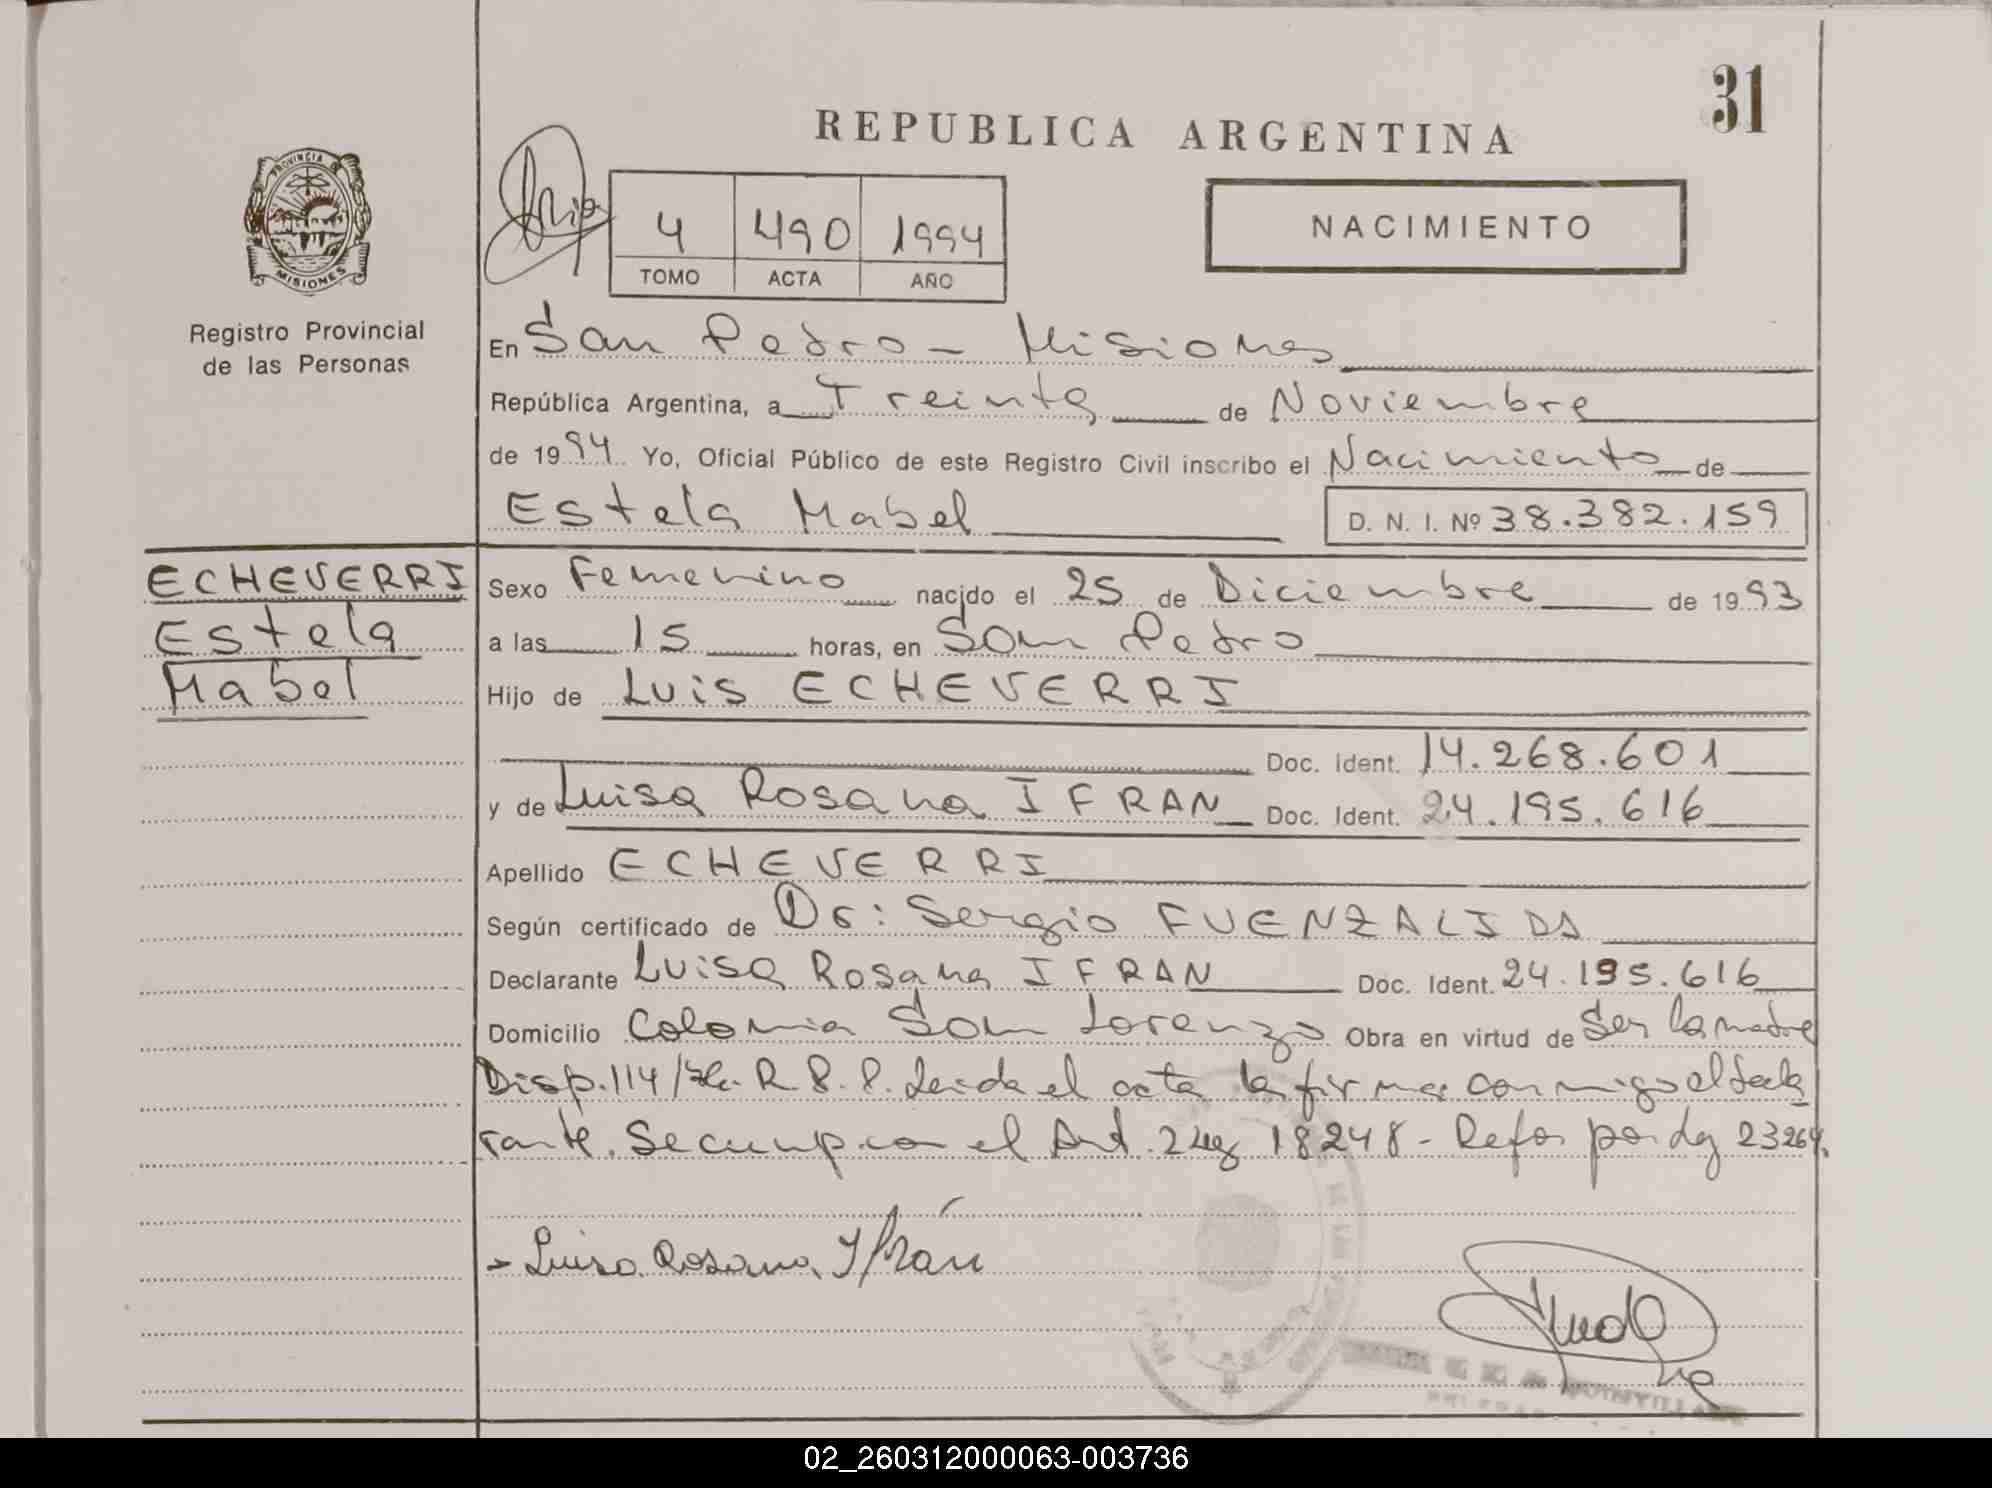 31
REPUBLICA ARGENTINA
PROVINCIA DE
MISIONES
Registro Provincial
de las Personas
4 490 1994
TOMO ACTA AÑO
NACIMIENTO
En San Pedro - Misiones
República Argentina, a Treinta de Noviembre
de 1994 Yo, Oficial Público de este Registro Civil inscribo el Nacimiento de
Estela Mabel D. N. I. Nº 38.382.159
ECHEVERRI
Estela
Mabel
Sexo Femenino nacido el 25 de Diciembre de 1993
a las 15 horas, en San Pedro
Hijo de Luis ECHEVERRI
Doc. Ident. 14.268.601
y de Luisa Rosana IFRAN Doc. Ident. 24.195.616
Apellido ECHEVERRI
Según certificado de Dr: Sergio FUENZALIDA
Declarante Luisa Rosana IFRAN Doc. Ident. 24.195.616
Domicilio Colonia San Lorenzo Obra en virtud de Ser la madre
Disp. 114/ R.P.P. Leida el acta la firma conmigo el decla
rante. Se cump. con el Art. 2 Ley 18248 - Refor por Ley 23264.
Luisa Rosana Ifrán
02_260312000063-003736